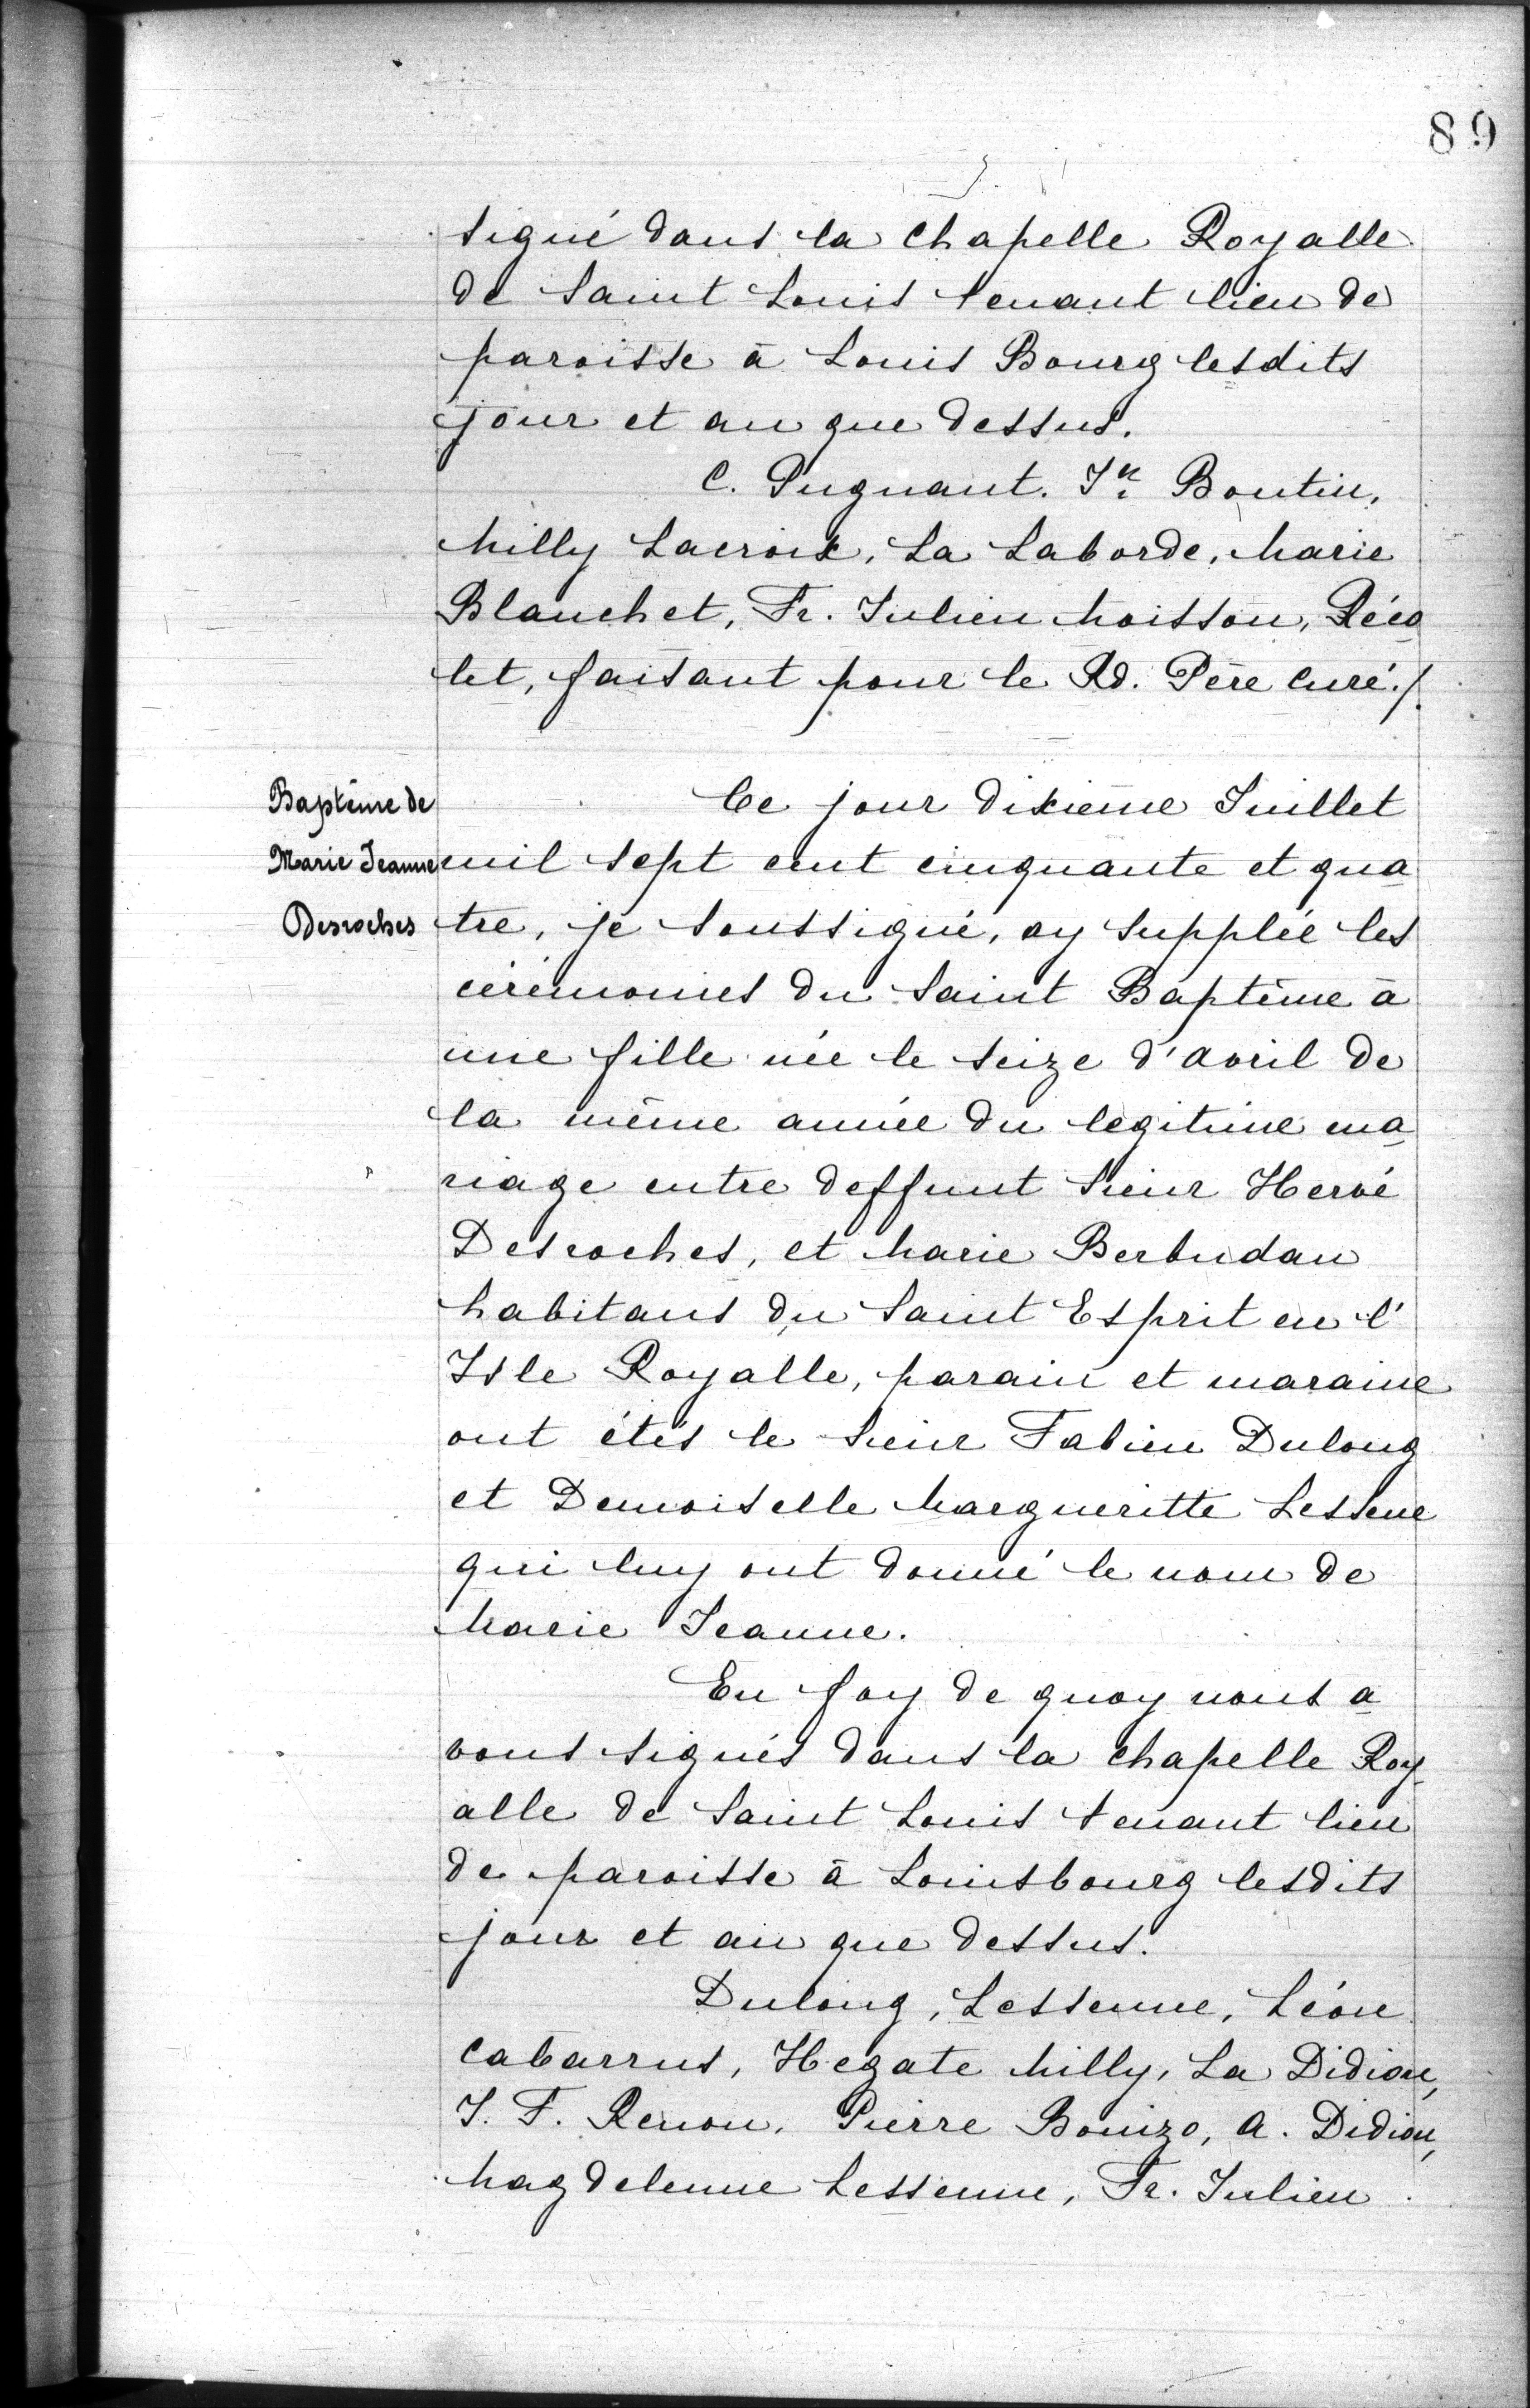 89
signé dans la Chapelle Royalle
de Saint Louis tenant lieu de
paroisse à Louis Bourg lesdits
jour et an que dessus.
C. Pugnant. Jn Boutin,
Milly Lacroix, La Laborde, Marie
Blanchet, Fr. Julien Moisson, Réco
let, faisant pour le Rd. Père Curé./.
Baptême de
Marie Jeanne
Desroches
Ce jour dixieme Juillet
mil sept cent cinquante et qua
tre, je soussigné, ay supplée les
cérémonies du Saint Baptême à
une fille née le seize d'avril de
la même année du legitime ma
riage entre deffunt Sieur Hervé
Desroches, et Marie Berbudau
habitans du Saint Esprit en l'
Isle Royalle, parain et maraine
ont étés le Sieur Fabien Dulong
et Demoiselle Margueritte Lessene
qui luy ont donné le nom de
Marie Jeanne.
En foy de quoy nous a
vons signés dans la chapelle Roy
alle de Saint Louis tenant lieu
de paroisse à Louisbourg lesdits
jour et an que dessus.
Dulong, Lessenne, Léon
Cabarrus, Hegate Milly, La Didion,
J. F. Renou, Pierre Bouizo, A. Didion,
Magdelenne Lessenne, Fr. Julien